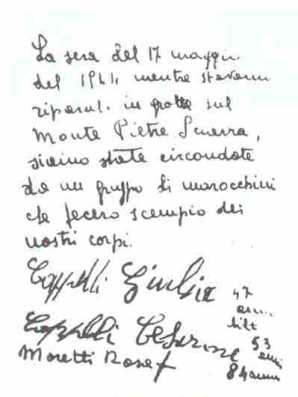 La sera del 17 maggio
del 1944 mentre stavamo
riparat. in grotte sul
Monte Pietre
siamo state circondate
da un gruppo di marocchini
che fecero scempio dei
nostri corpi.
Cappelli Giulia 47
anni
Cappelli Cesarina 53
anni
Moretti Rosa 84 anni